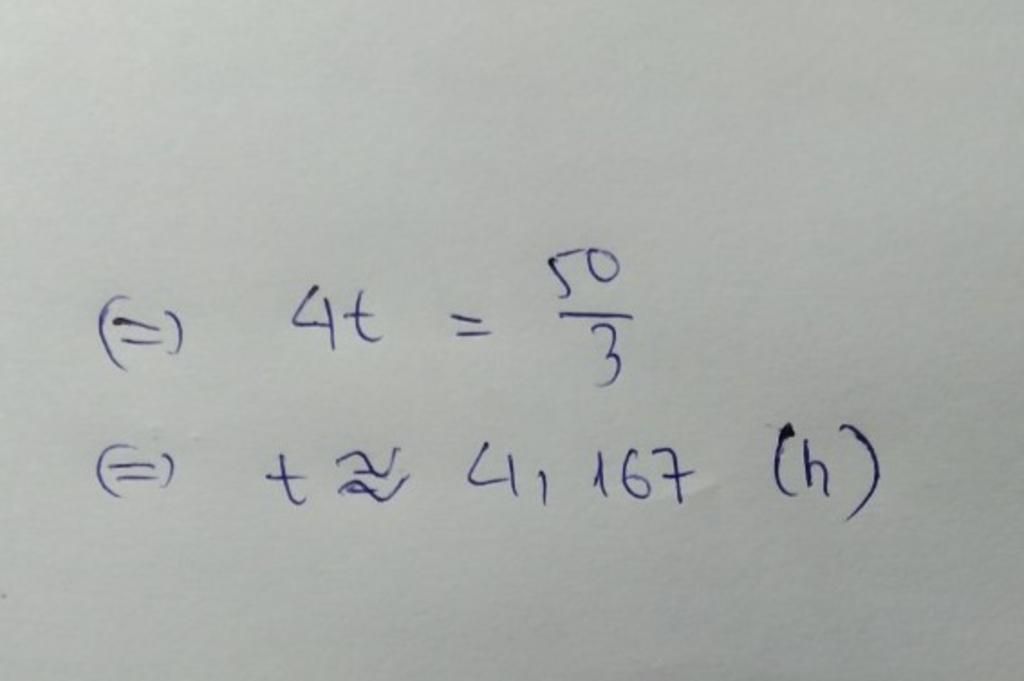 ⇔ 4t = 50/3
⇔ t ≈ 4,167 (h)